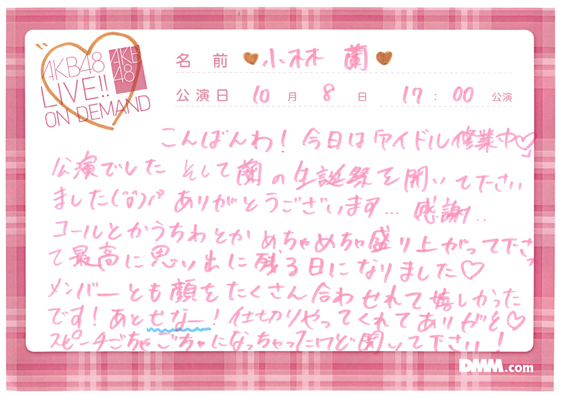 AKB48
LIVE!!
ON DEMAND
AKB
48
名前 小林 蘭
公演日 10月 8日 17:00 公演
こんばんわ!今日は「アイドル修業中♡」
公演でした そして蘭の生誕祭を開いて下さい
ました(ﾟ▽ﾟ)ﾉﾞ ありがとうございます… 感謝..
コールとかうちわとか めちゃめちゃ盛り上がって下さっ
て最高に思い出に残る日になりました♡
メンバーとも顔をたくさん合わせれて嬉しかった
です!あとせなー!仕切りやってくれてありがと♡
スピーチごちゃごちゃになっちゃったけど聞いて下さい!
DMM.com